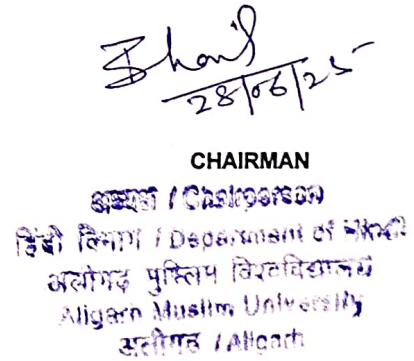 28/06/25
CHAIRMAN
अध्यक्ष / Chairperson
हिंदी विभाग / Department of Hindi
अलीगढ़ मुस्लिम विश्वविद्यालय
Aligarh Muslim University
अलीगढ़ / Aligarh